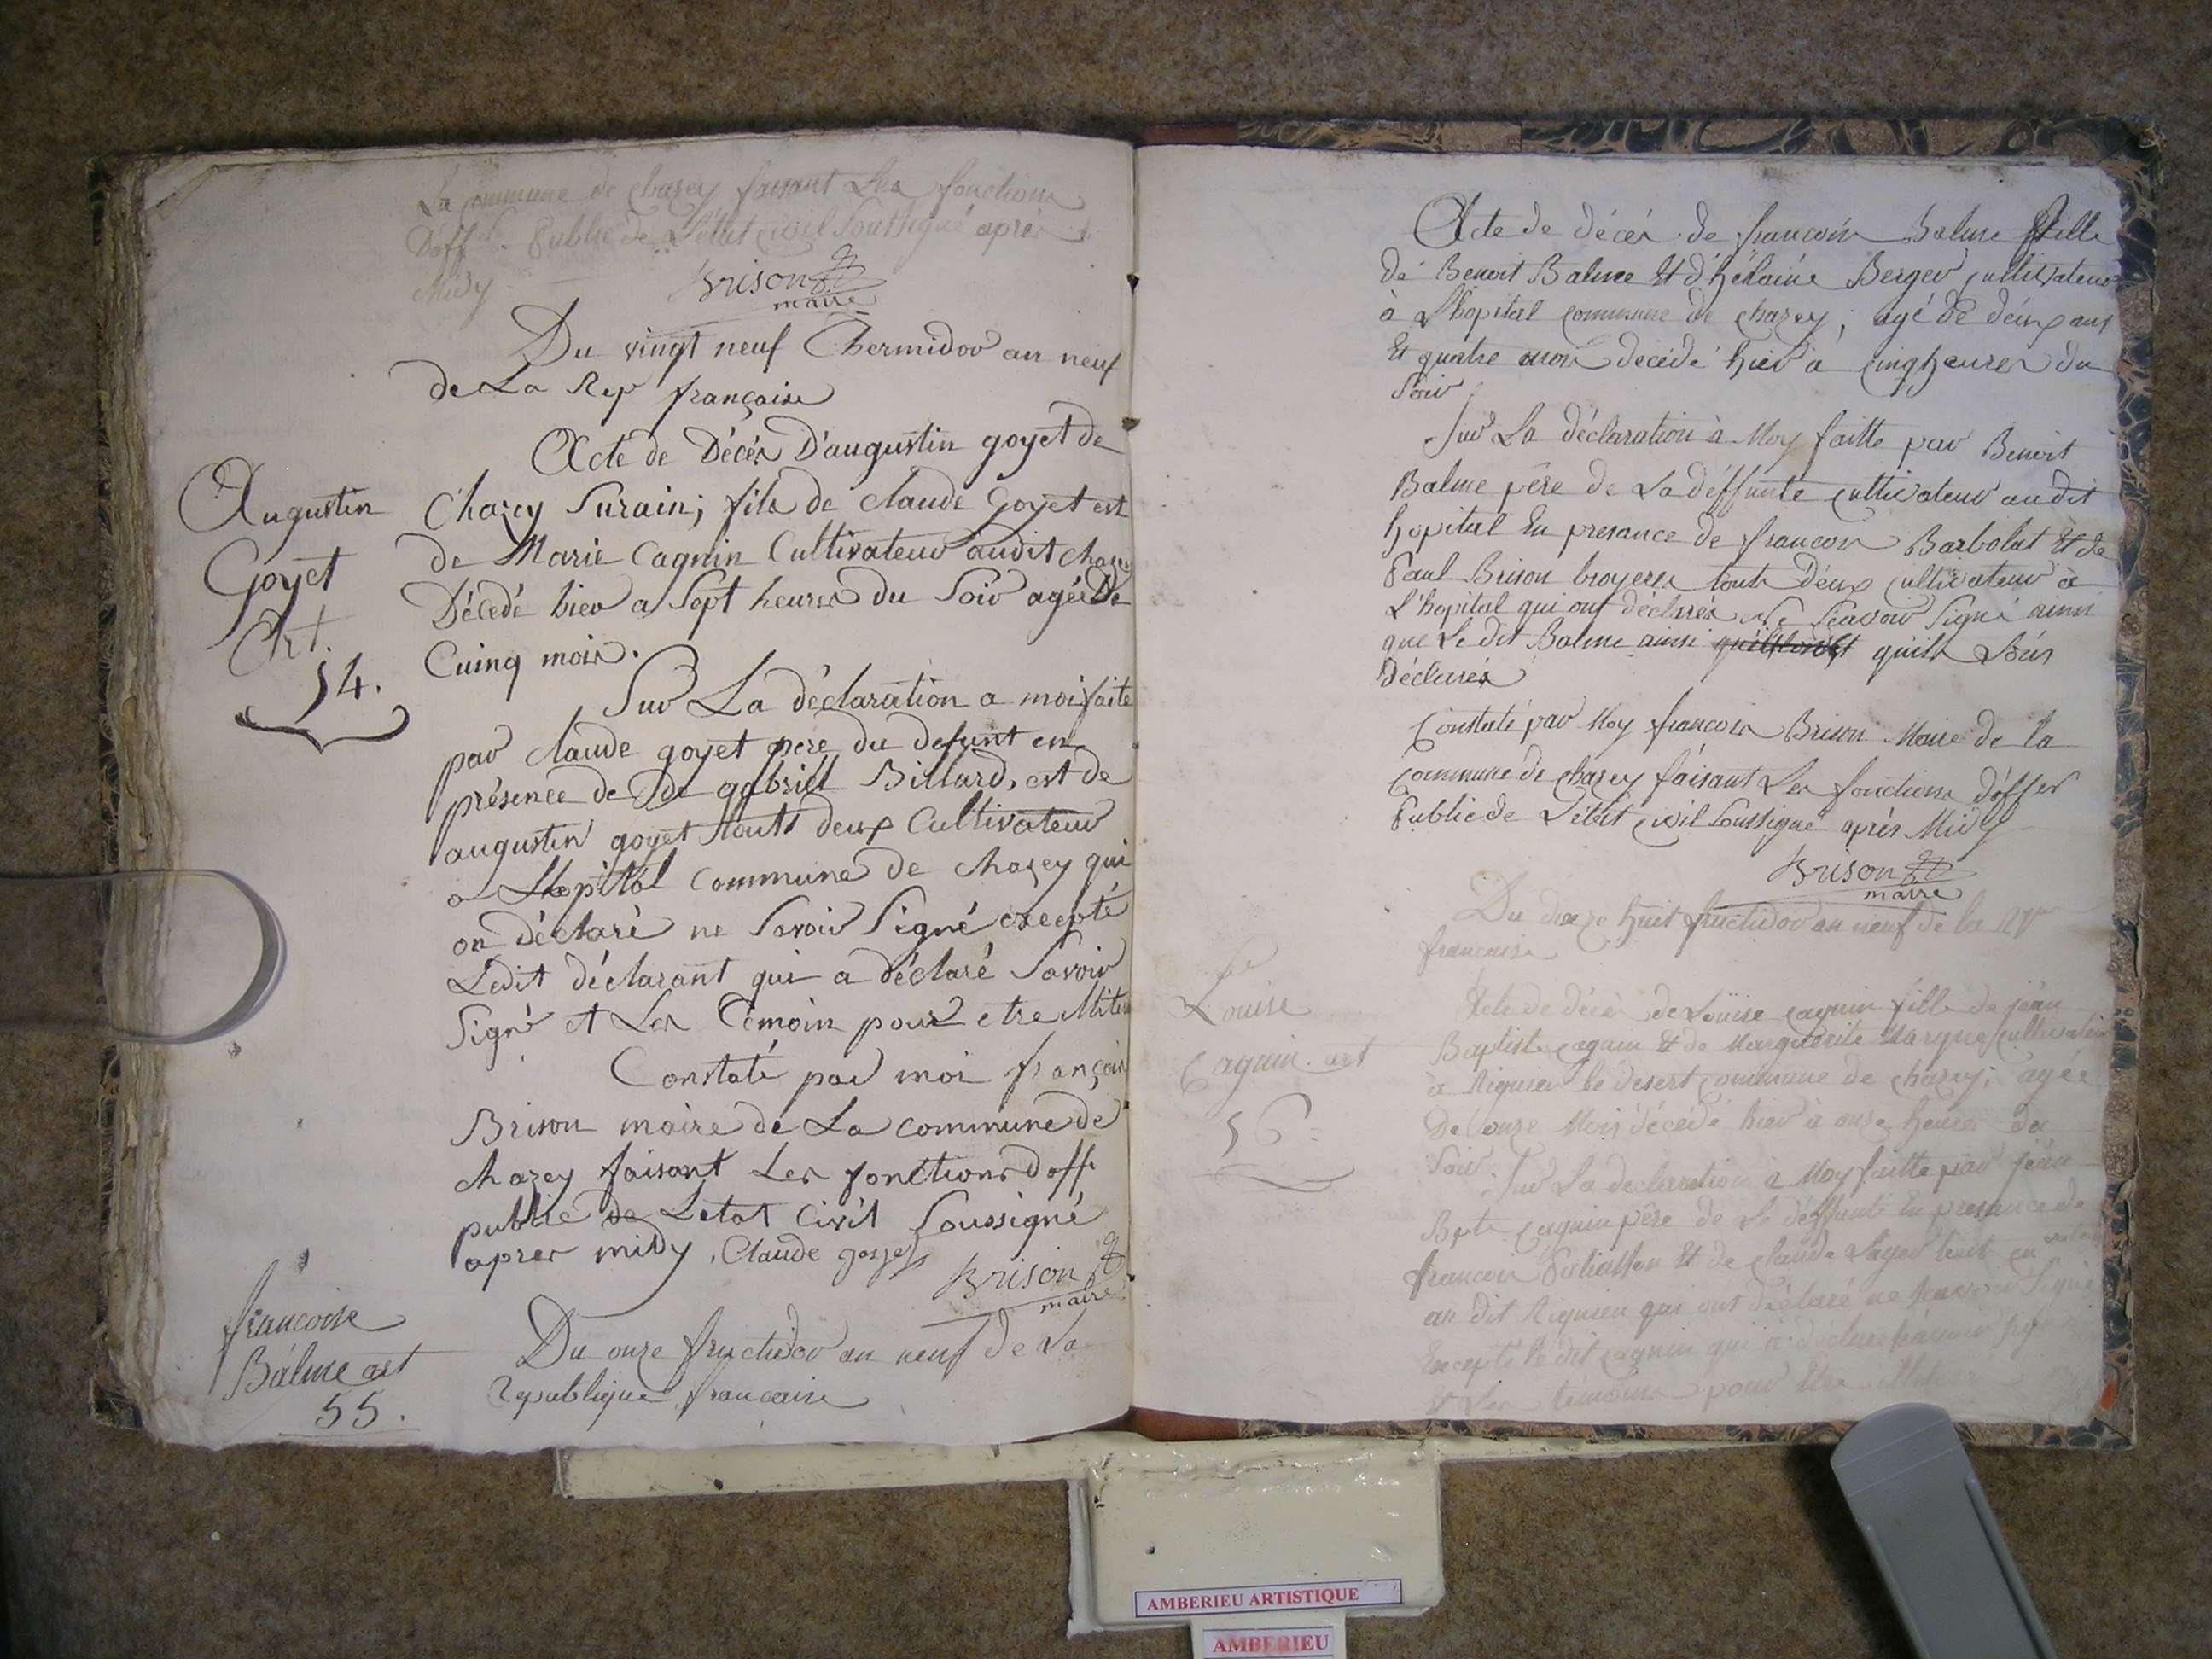 La commune de chazey faisant Les fonctions
D'off.er Public de L'état civil Soussigné après
Midy
Brison
maire
Du vingt neuf Thermidor an neuf
de La Rep française
Augustin
Goyet
Art.
54.
Acte de Décès D'augustin goyet de
Chazey Surain; fils de claude Goyet est
de Marie Cagnin Cultivateur audit chazey
Décedé hier a Sept heures du Soir agée De
Cuinq mois.
Sur La déclaration a moi faite
par claude goyet pere du defunt en
présence de de gabriel Billard, est de
augustin goyet touts deux Cultivateur
a Lhopital commune de chazey qui
on déclaré ne Savoir Signé excepté
Ledit déclarant qui a déclaré Savoir
Signé et Les Témoin pour etre
Constaté par moi françois
Brison maire de La commune de
chazey faisant Les fonctions doff.
public de Letat Civil Soussigné
apres midy . Claude goyet
Brison
maire
francoise
Balme art
55.
Du onze fructidor an neuf de La
Republique francaise
Acte de décès de francoise Balme fille
de Benoit Balme Et d'hélaine Berger cultivateur
à L'hopital commune de chazey; agé de deux ans
Et quatre mois décédé hier à cinq heures du
Soir
Sur La déclaration à Moy faitte par Benoit
Balme père de La déffunte cultivateur au dit
hopital En presance de francois Barbolat Et de
Paul Brison broyeres touts deux cultivateur à
L'hopital qui ont déclarés Ne Scavoir Signé ainsi
que Le dit Balme ainsi quils Lons
Déclarés
Constaté par Moy francois Brison Maire de la
Commune de chazey faisant Les fonctions d'offer
Public de L'état civil Soussigné après Midy
Brison
maire
Du dix huit fructidor an neuf de la
francaise
Louise
Cagnin art
56
Acte de décès de Louise Cagnin fille de jean
Baptiste cagnin Et de Marguerite cultivateur
à Rignieu le desert commune de chazey; agée
De onze Mois décédé hier à onze heures du
Soir.
Sur La declaration à Moy faitte par jean
Bpte cagnin père de La déffunte En presance de
francois Et de claude touts
au dit Rignieu qui ont déclaré ne Scavoir Signé
Excepté le dit cagnin qui a déclaré scavoir
et Les témoins pour etre
AMBERIEU ARTISTIQUE
AMBERIEU